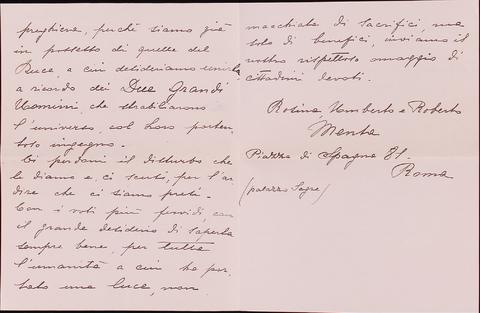 preghiera, perché siamo già
in possesso di quella del
Duce, a cui desideriamo unirla
a ricordo dei Due Grandi
Uomini, che strabiliarono
l'universo, col loro porten-
toso ingegno.
Ci perdoni il disturbo che
le diamo e, ci scusi, per l'ar
dire che ci siamo presi.
Con i voti più fervidi, con
il grande desiderio di saperla
sempre bene, per tutta
l'umanità a cui ha por
tato una luce, non
macchiata di sacrifici, ma
solo di benefici, inviamo il
nostro rispettoso omaggio di
cittadini devoti.
Rosina, Umberto e Roberto
Menta
Piazza di Spagna 81.
Roma
(palazzo)